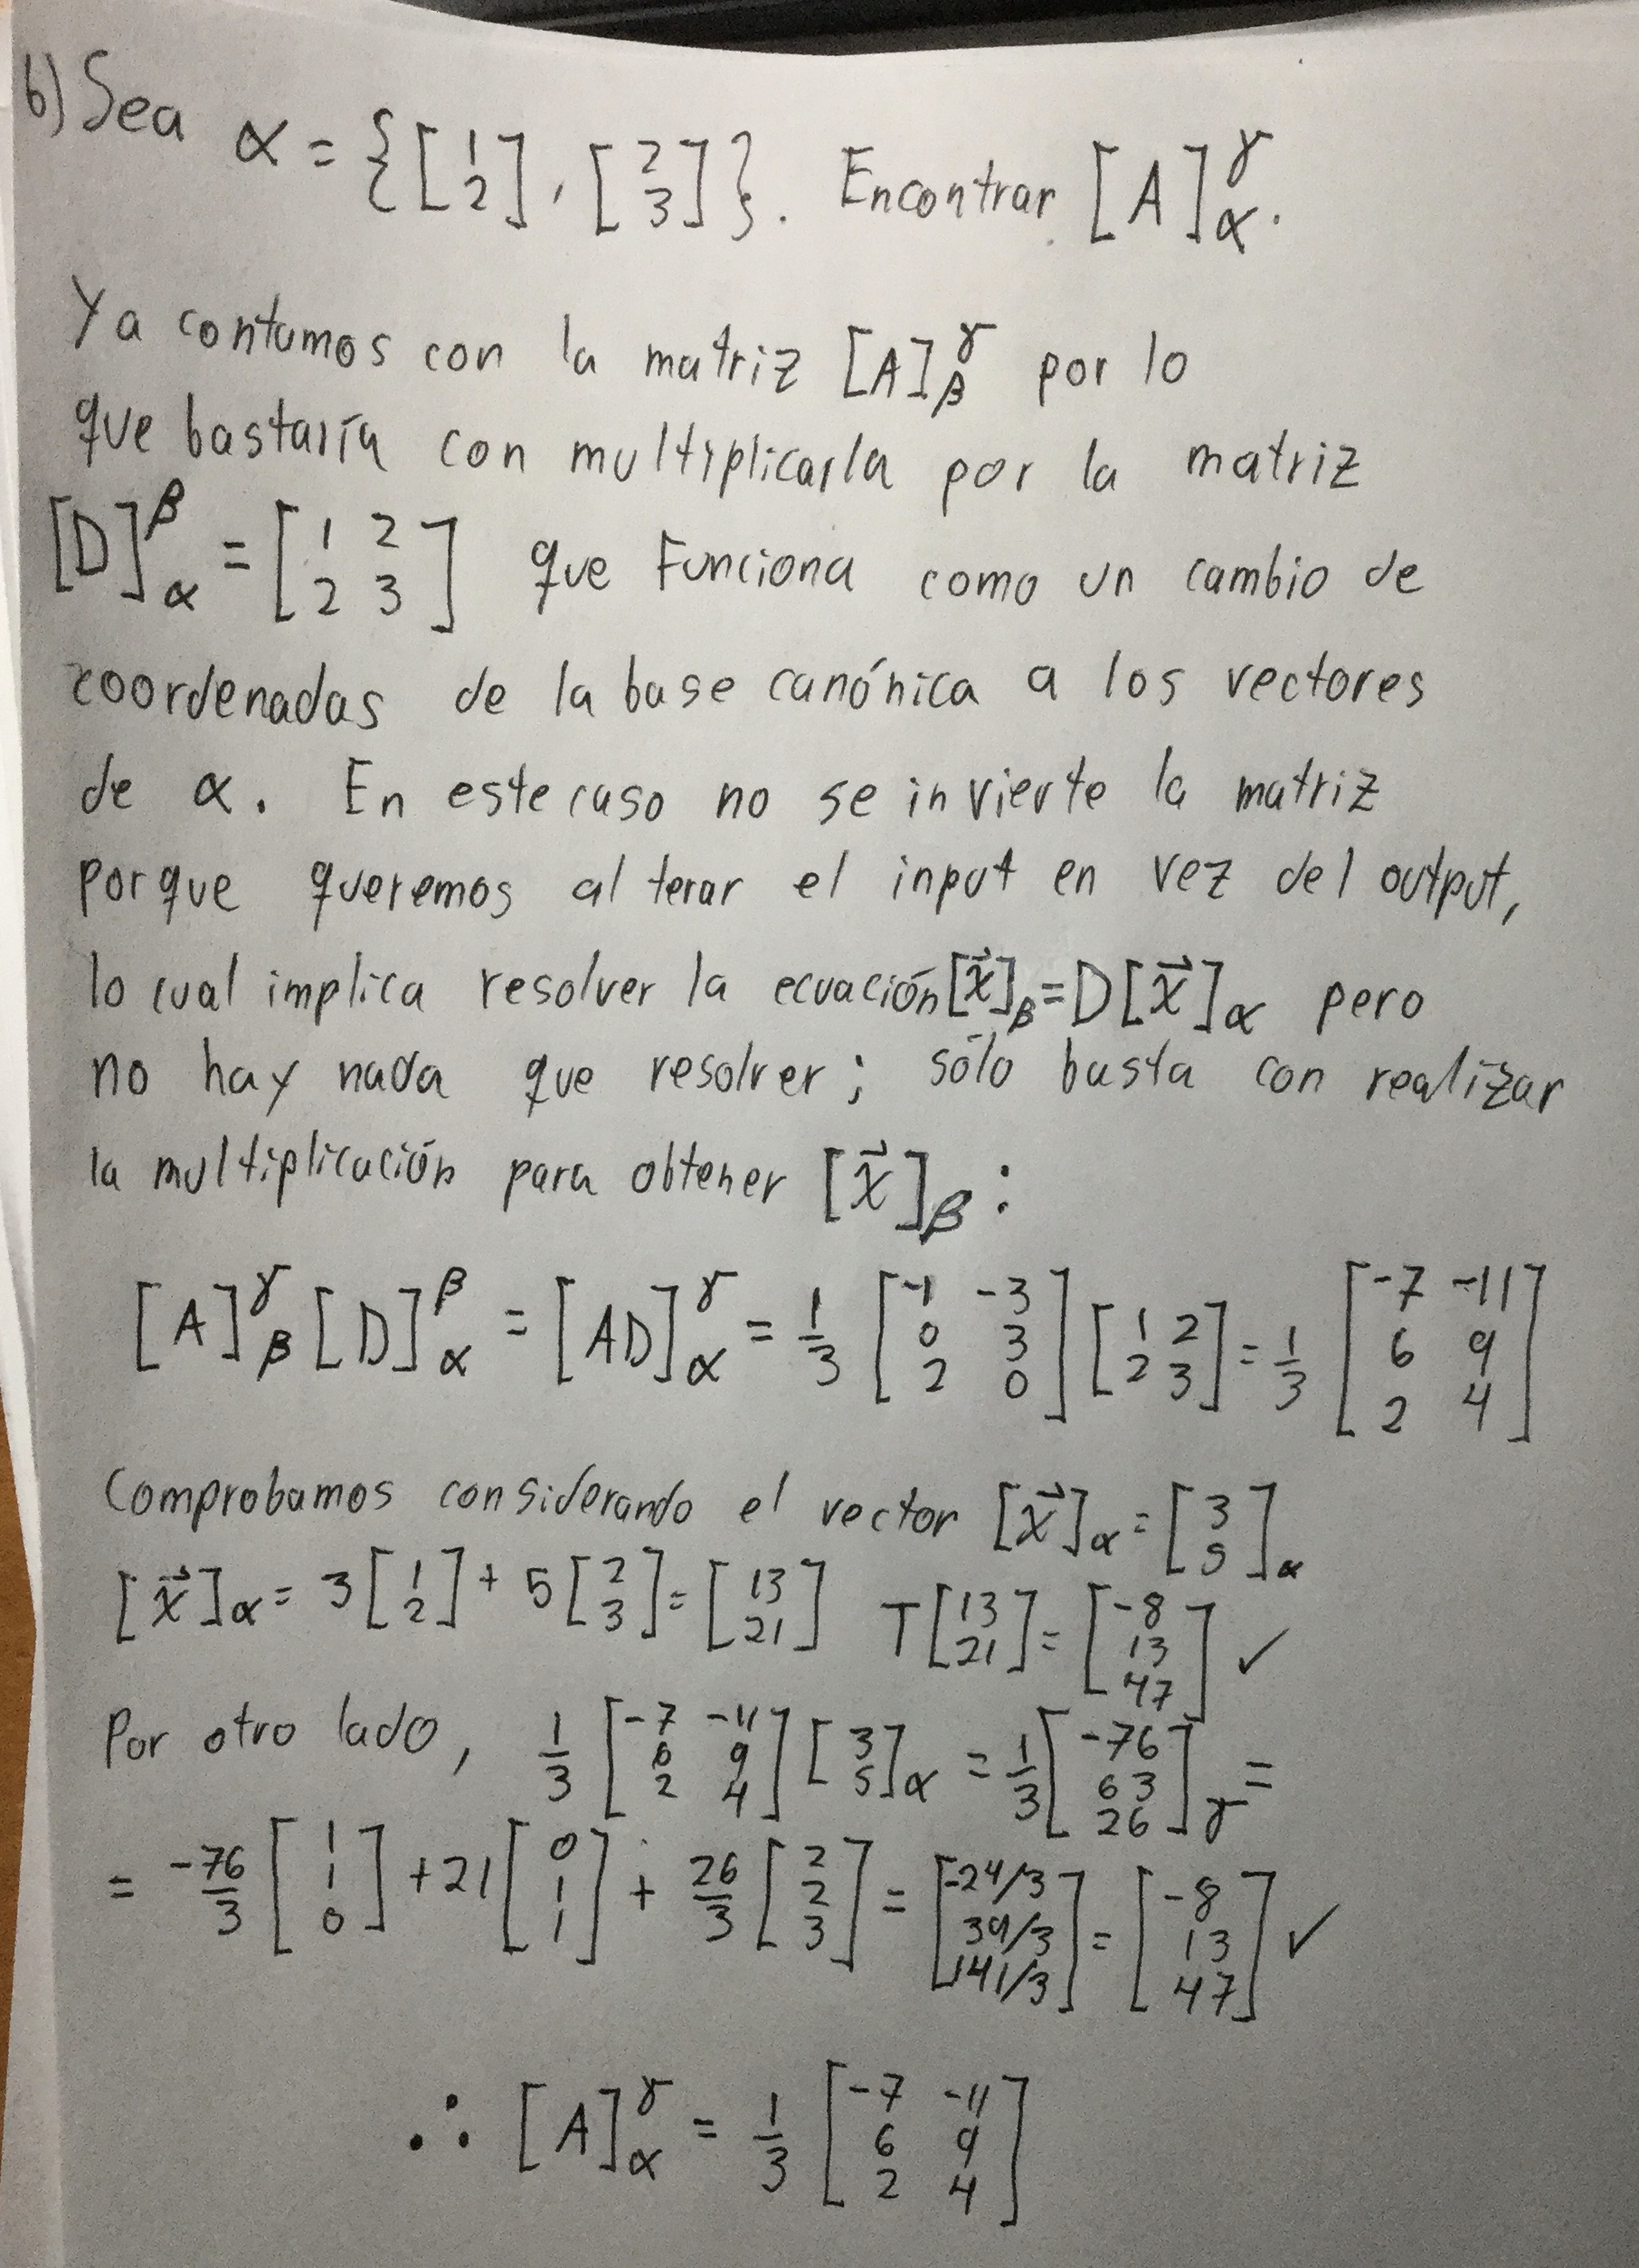 b) Sea α = {[1 2], [2 3]}. Encontrar [A]^γ_α.
Ya contamos con la matriz [A]^γ_β por lo
que bastaría con multiplicarla por la matriz
[D]^β_α = [1 2; 2 3] que funciona como un cambio de
coordenadas de la base canónica a los vectores
de α. En este caso no se invierte la matriz
porque queremos alterar el input en vez del output,
lo cual implica resolver la ecuación [x⃗]_β = D[x⃗]_α pero
no hay nada que resolver; sólo basta con realizar
la multiplicación para obtener [x⃗]_β :
[A]^γ_β [D]^β_α = [AD]^γ_α = 1/3 [-1 -3; 0 3; 2 0] [1 2; 2 3] = 1/3 [-7 -11; 6 9; 2 4]
Comprobamos considerando el vector [x⃗]_α = [3 5]_α
[x⃗]_α = 3 [1 2] + 5 [2 3] = [13 21] T [13 21] = [-8 13 47] ✓
Por otro lado, 1/3 [-7 -11; 6 9; 2 4] [3 5]_α = 1/3 [-76 63 26]_γ =
= -76/3 [1 1 0] + 21 [0 1 1] + 26/3 [2 2 3] = [-24/3 39/3 141/3] = [-8 13 47] ✓
∴ [A]^γ_α = 1/3 [-7 -11; 6 9; 2 4]